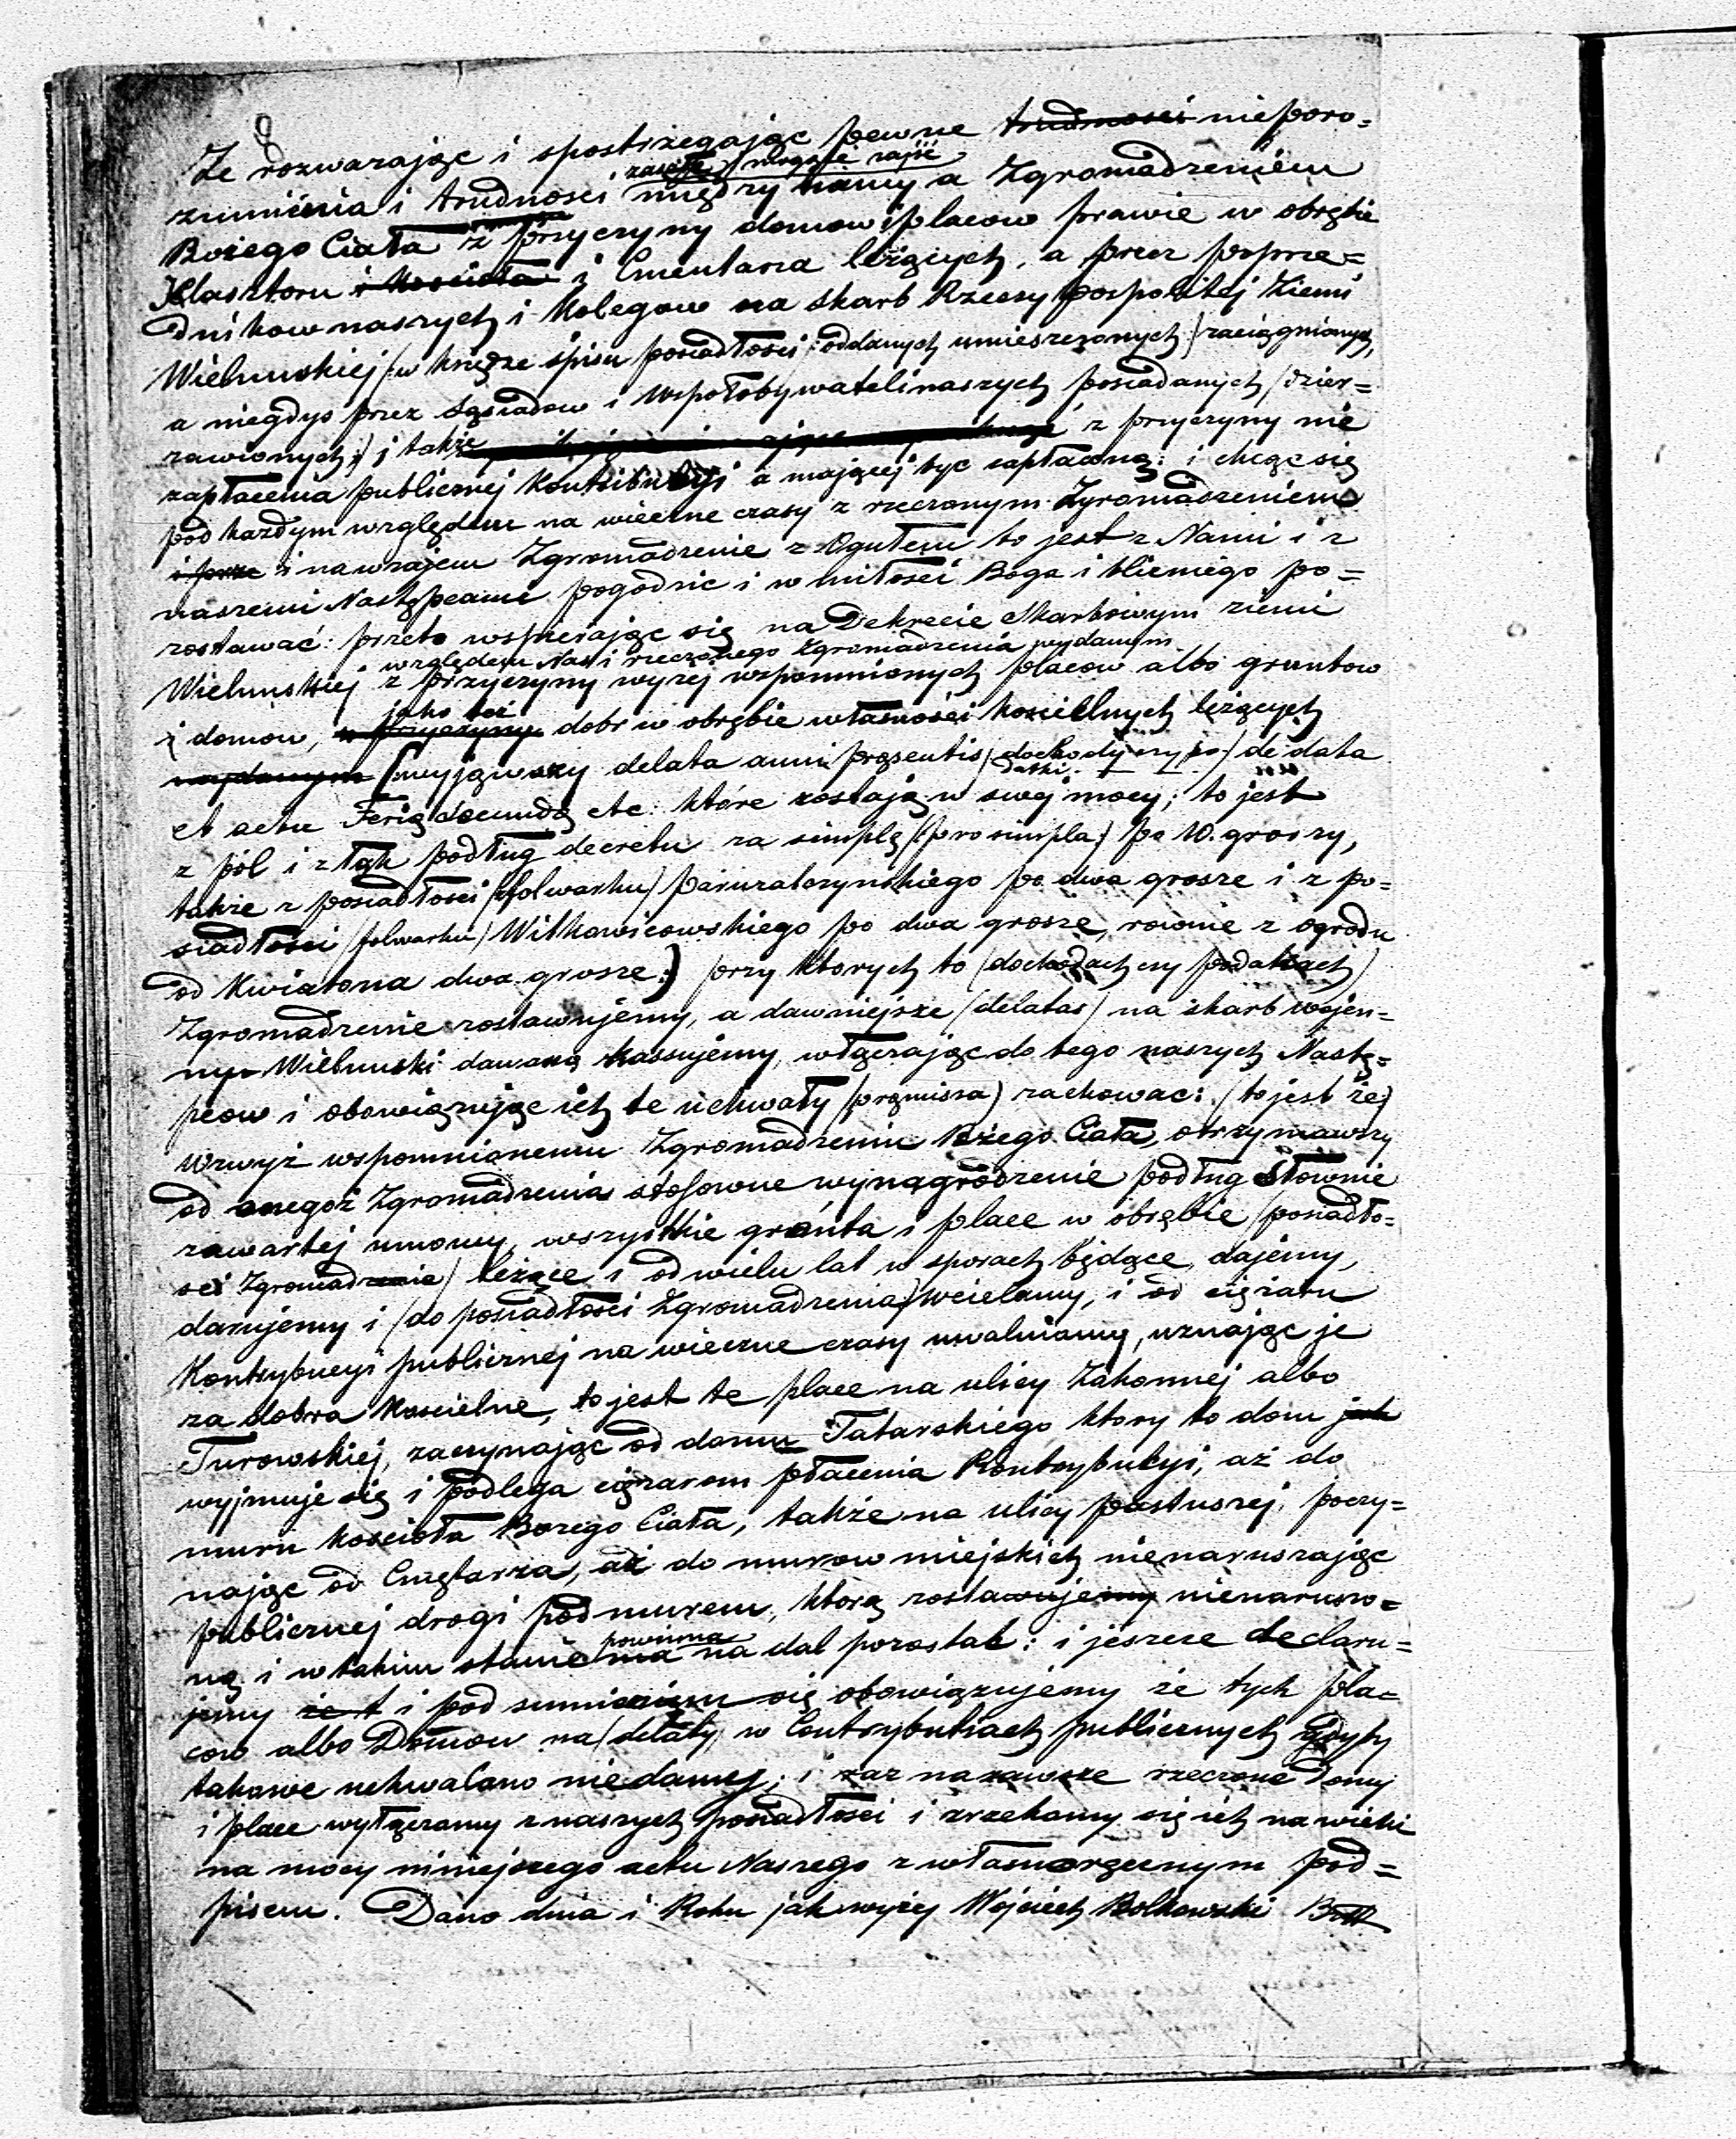 Że rozwarzając i spostrzegając pewne trudnosci nieporo=
zumienia i trudnosci zaszłe i mogące zajść między nami a Zgromadzeniem
Bożego Ciała z przyczyny domow i placow prawie w obrębie
Klasztoru i Kościoła i Cmentarza leżących, a przez poprze=
dnikow naszych i Kolegow na skarb Rzeczypospolitej Ziemi
Wieluńskiej (w księdze spisu posiadłości oddanych umieszczonych) zaciągnionych,
a niegdys przez Sąsiadow i Wspołobywateli naszych posiadanych (dzier=
zawionych;) i także z przyczyny nie
zapłacenia publicznej Kontribucyi a mającej być zapłaconą: i chcąc się
pod każdym względem na wieczne czasy z rzeczonym Zgromadzeniem
i prze i nawzajem Zgromadzenie z Ogułem to jest z Nami i z
naszemi Następcami pogodzic i w miłosci Boga i bliźniego po=
zostawać: przeto wspierając się na Dekrecie Skarbowym ziemi
względem Nas i rzeczonego Zgromadzenia wydanym
Wieluńskiej z przyczyny wyżej wspomnionych placow albo gruntow
i domow, z przyczyny jako też dobr w obrębie własności koscielnych leżących
wydanym (wyjąwszy delata anni presentis) dochody czy po) datki de data
et actu Feria secunda etc: które zostają w swej mocy; to jest
z pól i z łąk podług decretu za simplę (pro simpla) po 10. groszy,
także z posiadłości (folwarku) Parurzalczynskiego po dwa grosze i z po=
siadłości (folwarku) Witkowicowskiego po dwa grosze, rownie z ogrodu
od Kwiatona dwa grosze;) przy ktorych to (dochodach czy podatkach)
Zgromadzenie zostawujemy, a dawniejsze (delatas) na skarb wojen=
ny Wieluński dawaną kassujemy, włączając do tego naszych Nastę=
pcow i obowięzując ich te uchwały (premissa) zachowac: (to jest że)
wzwyż wspomnianemu Zgromadzeniu Bożego Ciała, otrzymawszy
od onegoż Zgromadzenia stosowne wynagrodzenie podług słownie
zawartej umowy, wszystkie gronta i place w obrębie (posiadło=
sci Zgromadzenia) leżące i od wielu lat w sporach będące, dajemy,
darujemy i (do posiadłości Zgromadzenia) wcielamy, i od ciężaru
Kontrybucyi publicznej na wieczne czasy uwalniamy, uznając je
za dobra Koscielne, to jest te place na ulicy Zakonnej albo
Turowskiej, zaczynając od domu Tatarskiego ktory to dom jak
wyjmuje się i podlega ciężarom płacenia Kontrybucyi, aż do
muru kościoła Bożego Ciała, także na ulicy pastuszej, poczy=
nając od Cmętarza, aż do murow miejskich nienaruszając
publicznej drogi pod murem, ktorą zostawujemy nienaruszo=
ną i w takim stanie ma powinna na dal pozostać: i jeszcze declaru=
jemy że t i pod sumieniem się obowiązujemy że tych pla=
cow albo Domow na (delaty) w Contrybutiach publicznych gdyby
takowe uchwalano niedamy; i raz nazawsze rzeczone Domy
i place wyłączamy z naszych posiadłości i zrzekamy się ich na wieki
na mocy niniejszego actu Naszego z własnoręcznym pod=
pisem. Dano dnia i Roku jak wyżej Wojciech Bolkowski